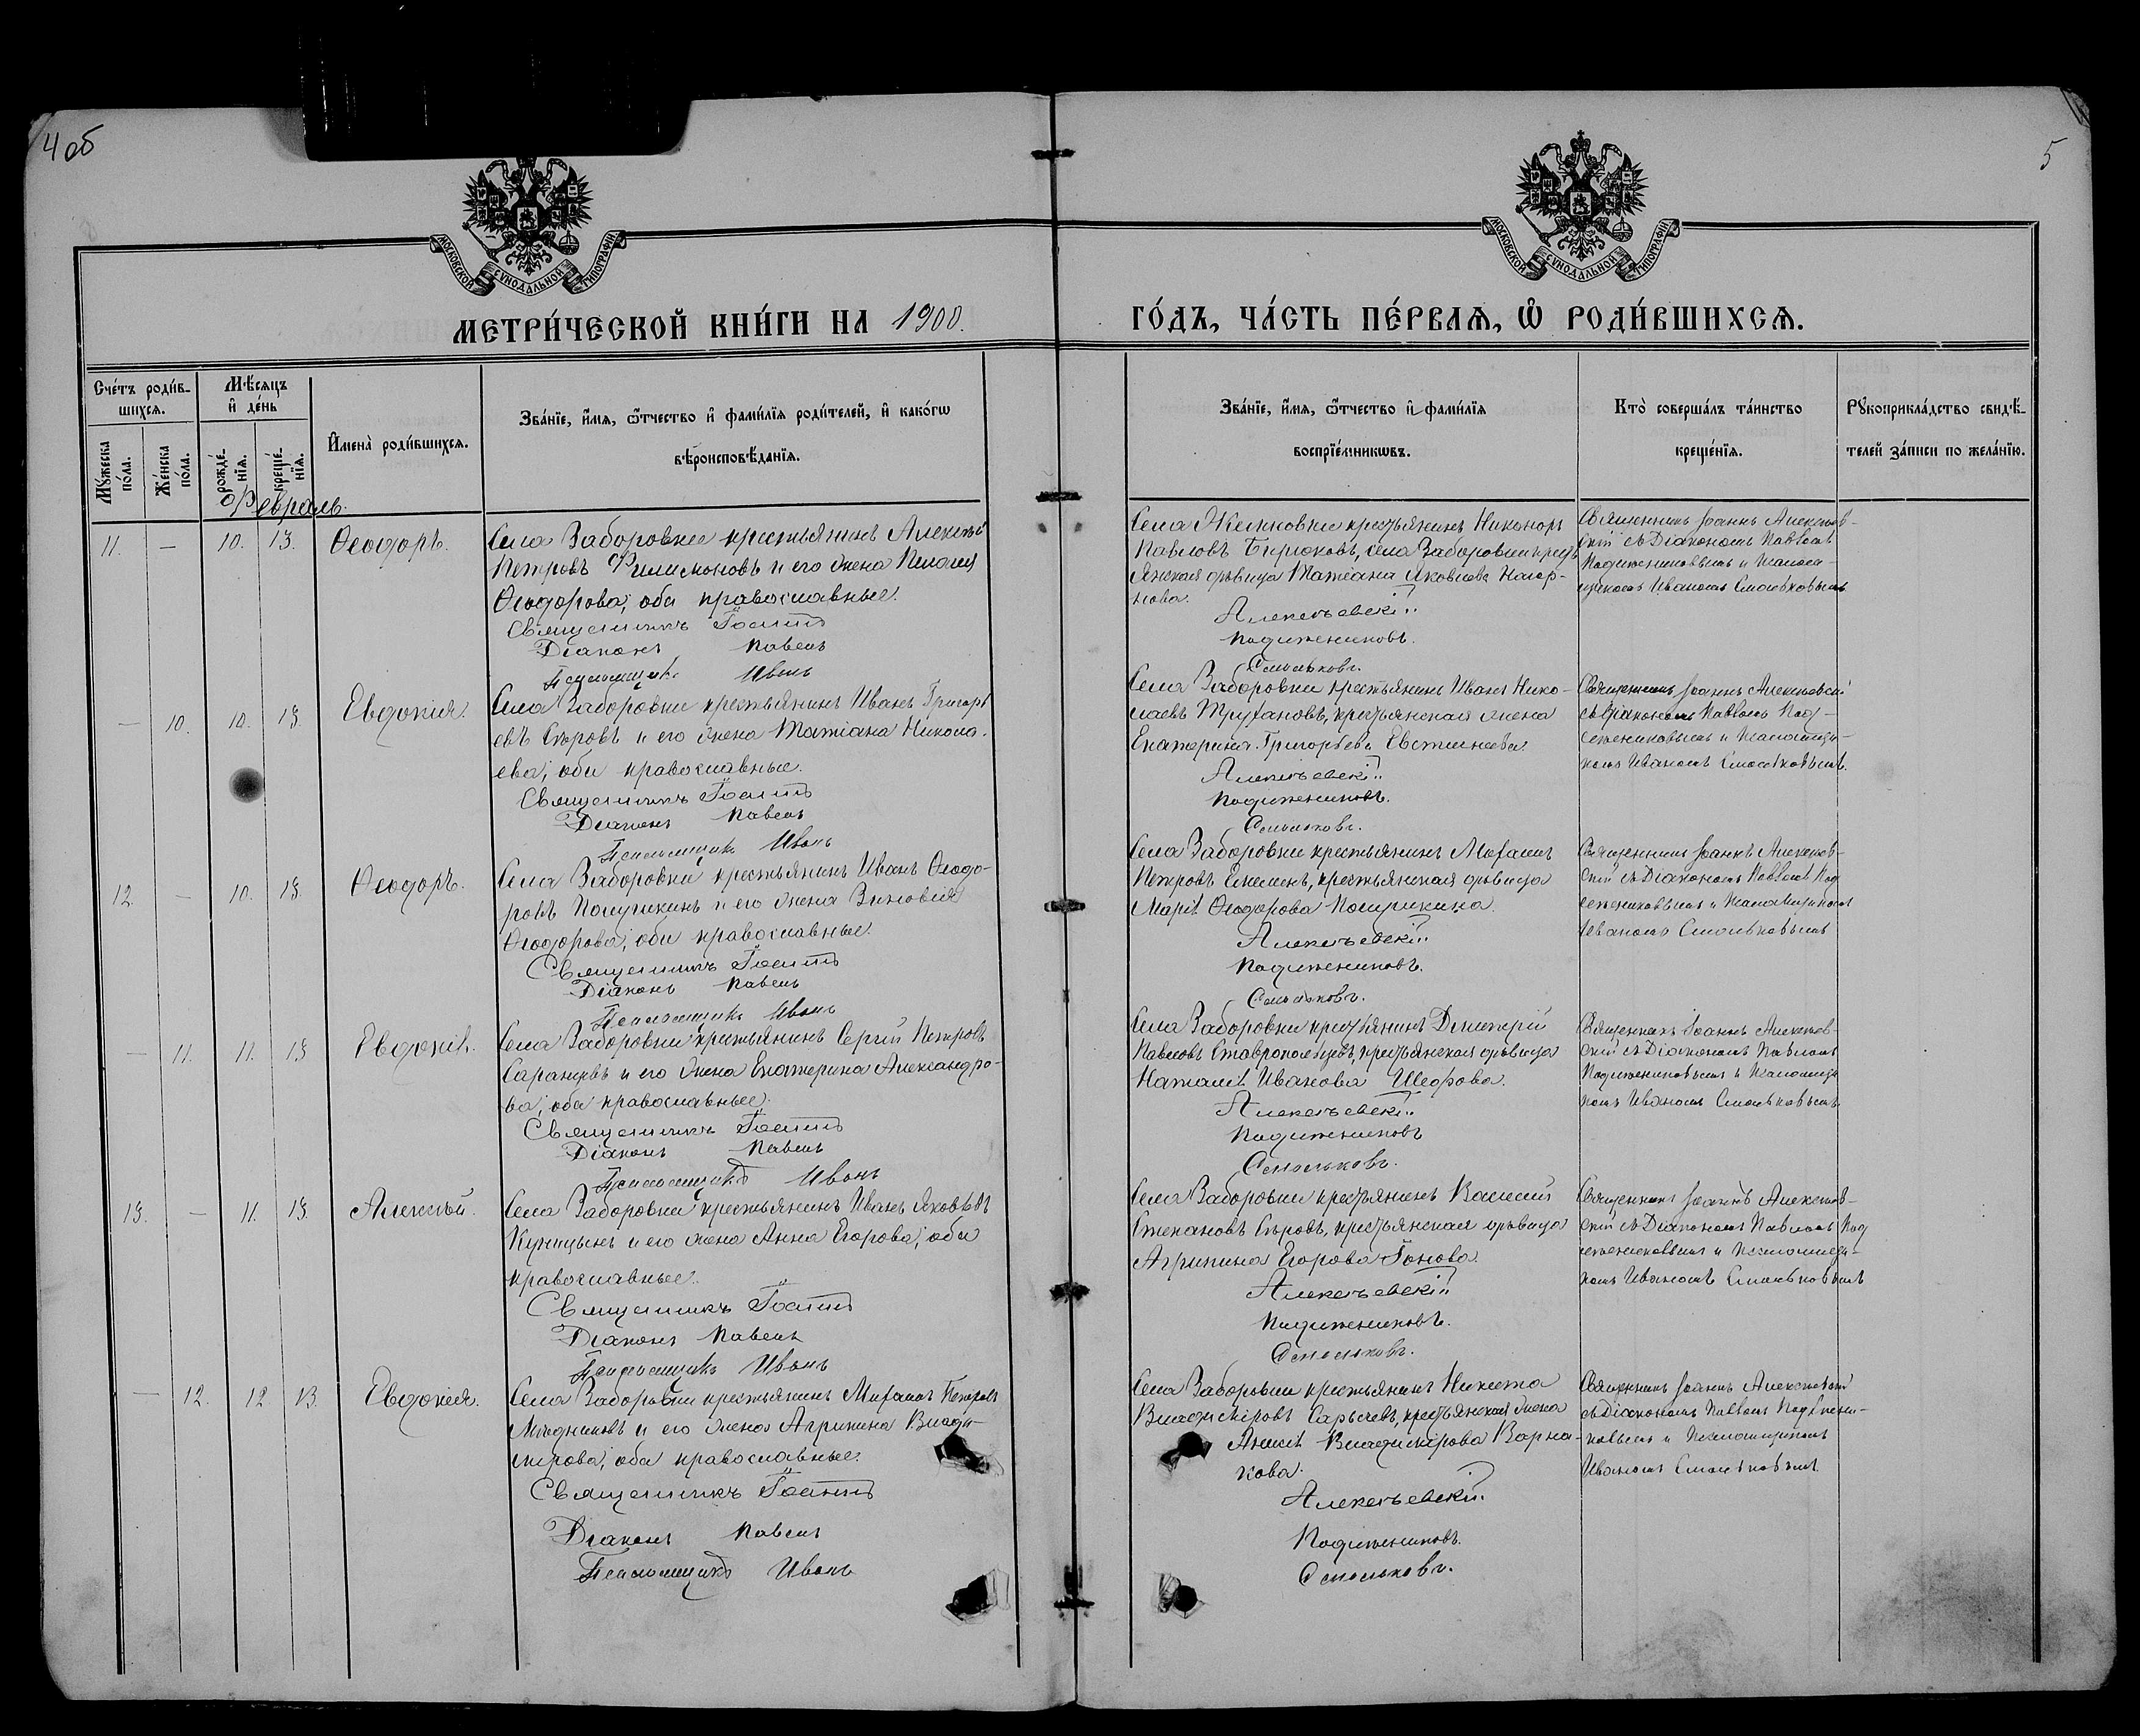 4 об
5
МОСКОВСКОЙ СѴНОДАЛЬНОЙ ТИПОГРАФІИ
МОСКОВСКОЙ СѴНОДАЛЬНОЙ ТИПОГРАФІИ
МЕТРИ́ЧЕСКОЙ КНИ́ГИ НА 1900.
ГО́ДЪ, ЧА́СТЬ ПЕ́РВАѦ, Ѽ РОДИ́ВШИХСѦ.
Сче́тъ роди́в-
шихсѧ.
Мꙋ́жеска по́ла.
Же́нска по́ла.
Мѣ́сѧцъ
и҆ де́нь
рожде́нїѧ.
креще́нїѧ.
И҆мена̀ роди́вшихсѧ.
Зва́нїе, и҆́мѧ, ѻ҆́тчество и҆ фами́лїѧ роди́телей, и҆ како́гѡ
вѣроисповѣ́данїѧ.
Зва́нїе, и҆́мѧ, ѻ҆́тчество и҆ фами́лїѧ
воспрїе́мникѡвъ.
Кто̀ соверша́лъ та́инство
креще́нїѧ.
Рꙋкоприкла́дство свидѣ́-
телей за́писи по жела́нїю.
Февраль.
11. — 10. 13. Ѳеодоръ.
Села Заборовки крестьянинъ Алексѣй
Петровъ Филимоновъ и его жена Пелагія
Ѳеодорова; оба православные.
Священникъ Іоаннъ
Діаконъ Павелъ
Псаломщикъ Иванъ
Села Жемковки крестьянинъ Никоноръ
Павловъ Бирюковъ, села Заборовки кресть
янская дѣвица Татіана Яковлева Нагор-
нова.
Алексѣевскій.
Подъячениковъ.
Смольковъ.
Священникъ Іоаннъ Алексѣев-
скій съ Діакономъ Павломъ
и Псалом-
щикомъ Иваномъ Смольковымъ
— 10. 10. 13. Евдокія.
Села Заборовки крестьянинъ Иванъ Григорь
евъ Сѣровъ и его жена Татіана Никола-
ева; оба православные.
Священникъ Іоаннъ
Діаконъ Павелъ
Псаломщикъ Иванъ
Села Заборовки крестьянинъ Иванъ Нико-
лаевъ Трухановъ, крестьянская жена
Екатерина Григорьева Евстинеева
Алексѣевскій.
Смольковъ.
Священникъ Іоаннъ Алексѣевскій
съ Діакономъ Павломъ
и Псаломщи-
комъ Иваномъ Смольковымъ.
12. — 10. 13. Ѳеодоръ.
Села Заборовки крестьянинъ Иванъ Ѳеодо-
ровъ Полушкинъ и его жена Зиновія
Ѳеодорова; оба православные.
Священникъ Іоаннъ
Діаконъ Павелъ
Псаломщикъ Иванъ
Села Заборовки крестьянинъ Михаилъ
Петровъ крестьянская дѣвица
Марія Ѳеодорова Полушкина.
Алексѣевскій.
Смольковъ.
Священникъ Іоаннъ Алексѣев-
скій съ Діакономъ Павломъ
и Псаломщикомъ
Иваномъ Смольковымъ
— 11. 11. 13 Евдокія.
Села Заборовки крестьянинъ Сергій Петровъ
Саранцевъ и его жена Екатерина Александро-
ва; оба православные.
Священникъ Іоаннъ
Діаконъ Павелъ
Псаломщикъ Иванъ
Села Заборовки крестьянинъ Димитрій
Павловъ Ставропольцевъ, крестьянская дѣвица
Наталія Иванова Шедрова.
Алексѣевскій.
Смольковъ.
Священникъ Іоаннъ Алексѣев-
скій съ Діакономъ Павломъ
и Псаломщи
комъ Иваномъ Смольковымъ
13. — 11. 13. Алексѣй.
Села Заборовки крестьянинъ Иванъ Яковлевъ
Куницынъ и его жена Анна Егорова; оба
православные.
Священникъ Іоаннъ
Діаконъ Павелъ
Псаломщикъ Иванъ
Села Заборовки крестьянинъ Василій
Степановъ Сѣровъ, крестьянская дѣвица
Агрипина Егорова Гонова.
Алексѣевскій
Смольковъ.
Священникъ Іоаннъ Алексѣев-
скій съ Діакономъ Павломъ
и Псаломщи-
комъ Иваномъ Смольковымъ
— 12. 12 13. Евдокія.
Села Заборовки крестьянинъ Михаилъ Петровъ
Мѣдниковъ и его жена Агрипина Влади-
мірова; оба православные.
Священникъ Іоаннъ
Діаконъ Павелъ
Псаломщикъ Иванъ
Села Заборовки крестьянинъ Никита
Владиміровъ Сарычевъ, крестьянская жена
Владимірова Варна-
кова.
Алексѣевскій.
Смольковъ.
Священникъ Іоаннъ Алексѣевскій
съ Діакономъ Павломъ
и Псаломщикомъ
Иваномъ Смольковымъ